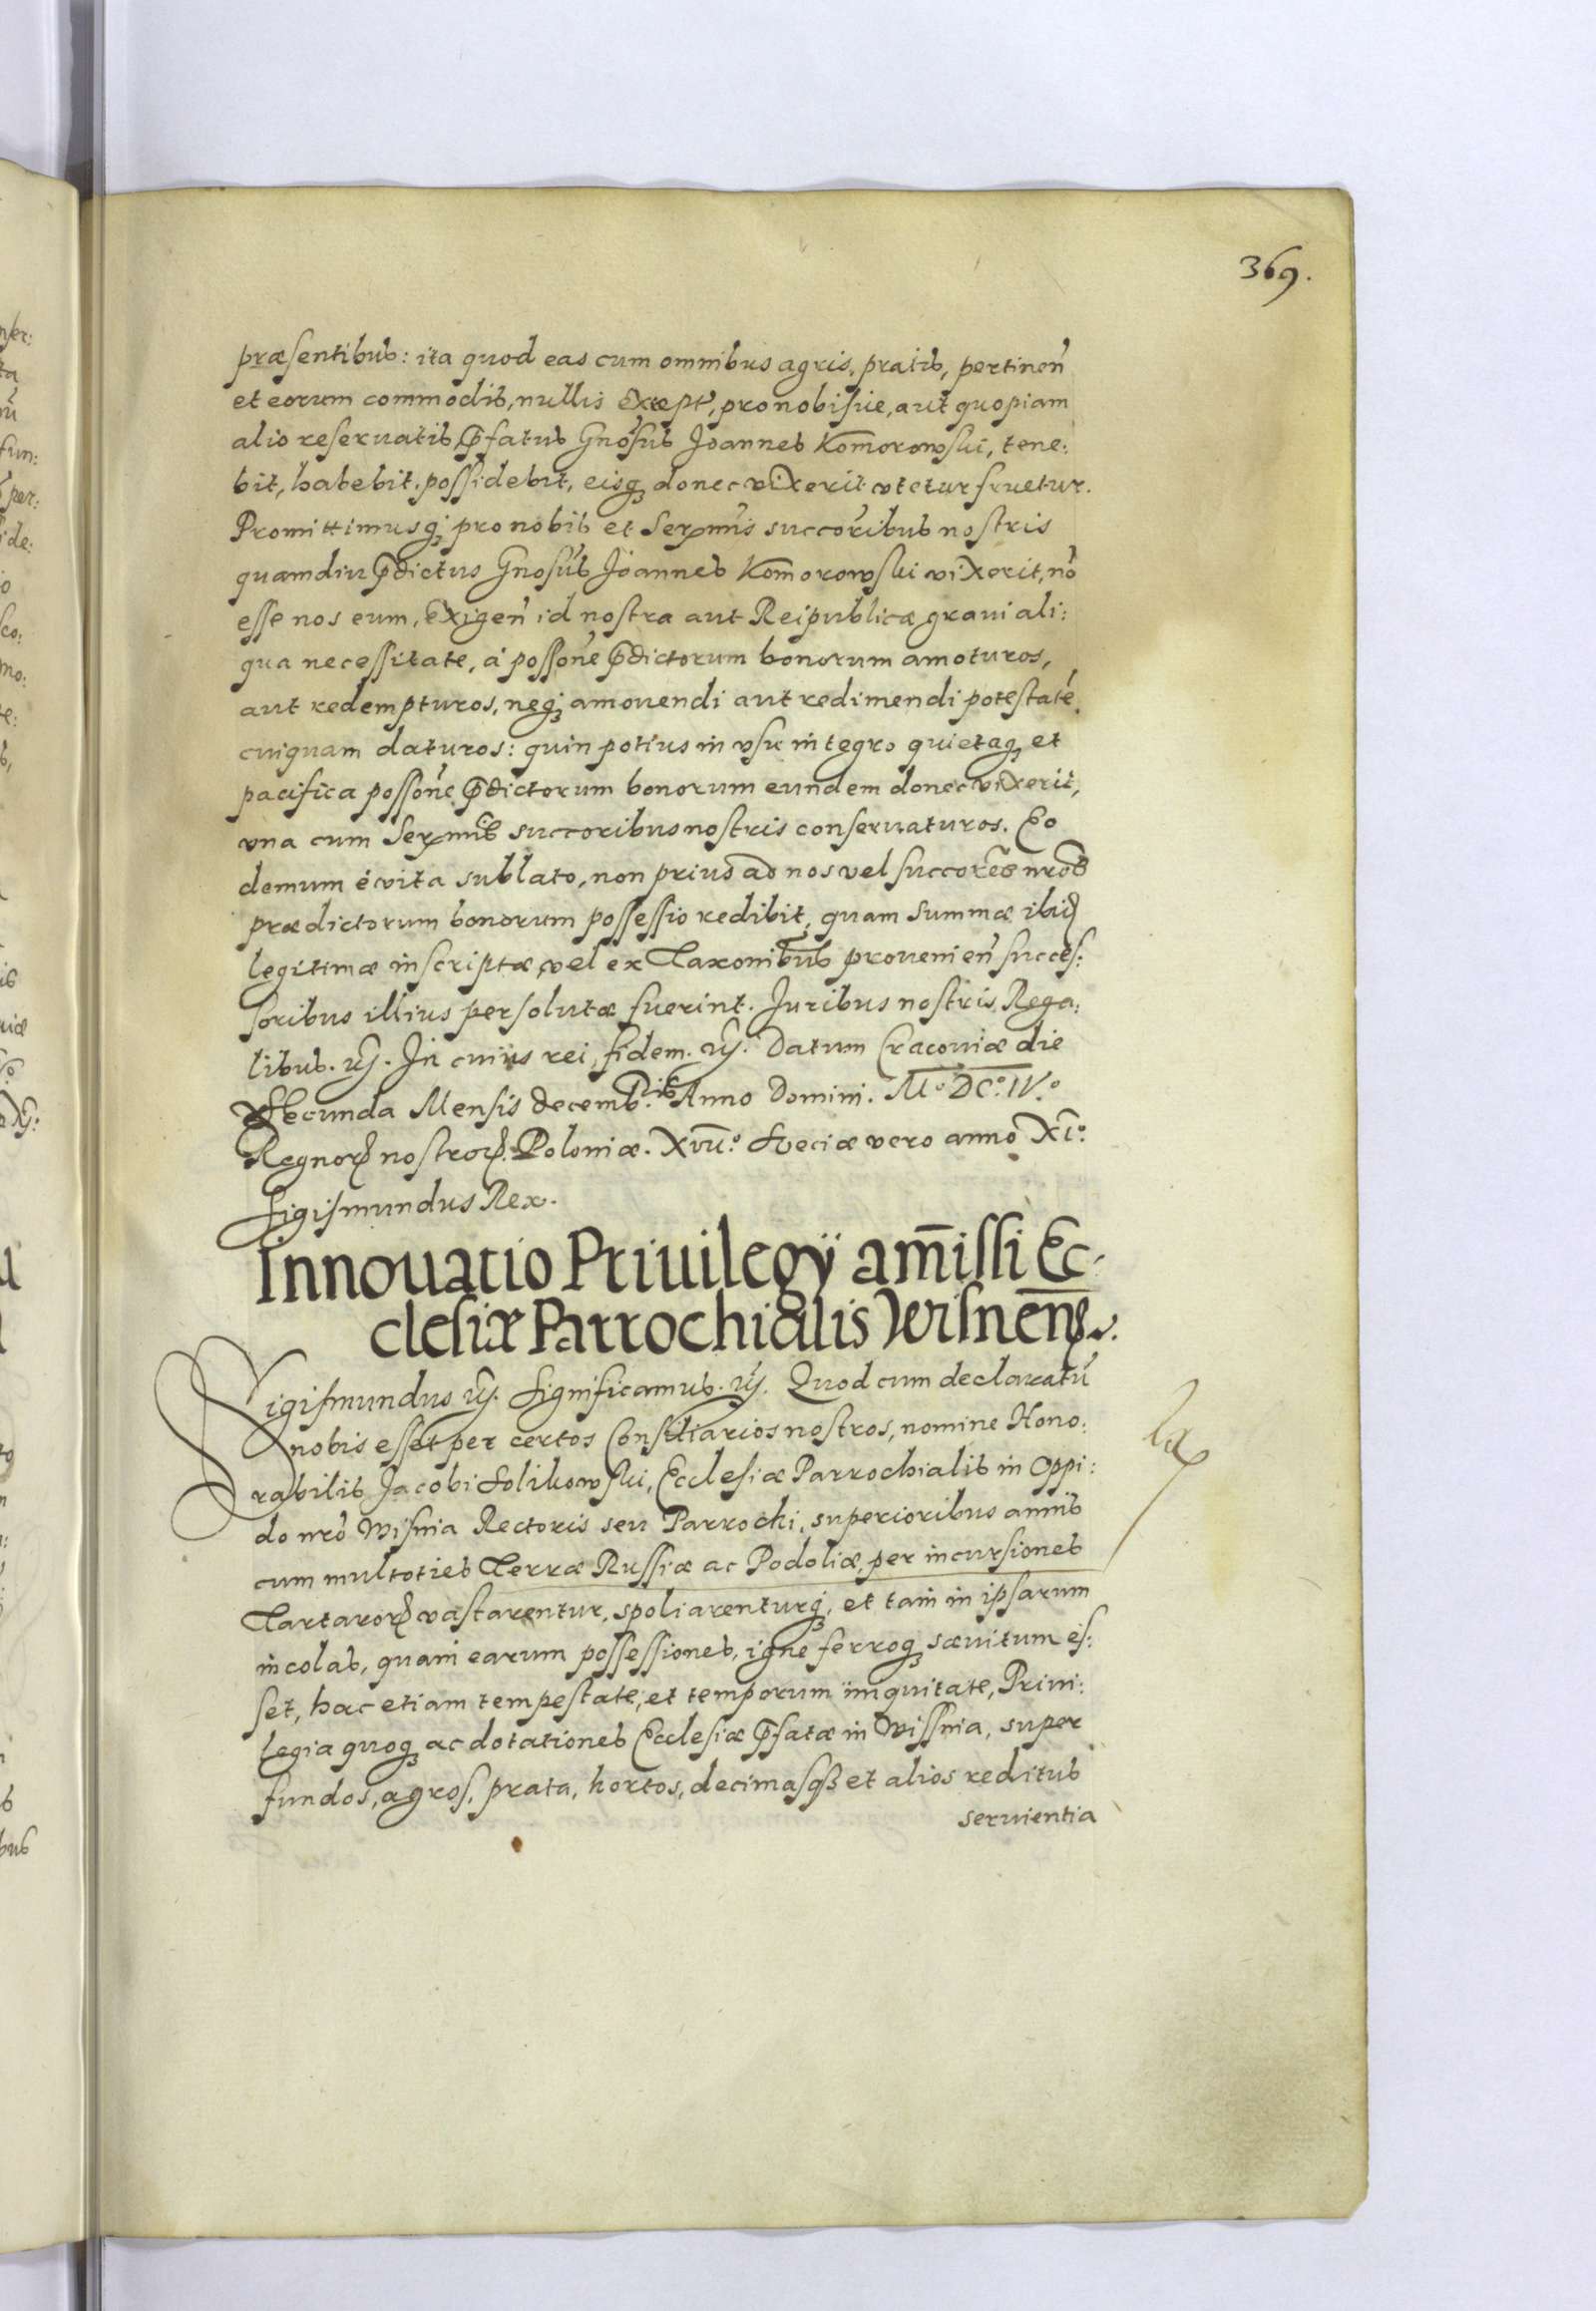 369.
præsentibus: ita quod eas cum omnibus agris, pratis, pertineñ
et eorum commodis, nullis except, pro nobis sive, aut quopiam
alio reseruatis, p̄fatus Gnosus Joannes Komorowski, tene:
bit, habebit, possidebit, eisq3 donec vixerit vtetur fruetur.
Promittimusq3 pro nobis et Serx̃mis succoribus nostris
quamdiu p̄dictus Gnosus Joannes Komorowski vixerit, nõ
esse nos eum, exigeñ id nostra aut Reipublicæ graui ali:
qua necessitate, à possone p̄dictorum bonorum amoturos,
aut redempturos, neq3 amouendi aut redimendi potestatẽ
cuiquam daturos: quin potius in vsu integro quietaq3 et
pacifica possone p̄dictorum bonorum eundem donec vixerit,
vna cum Serx̃mis succoribus nostris conseruaturos. Eo
demum è vita sublato, non prius ad nos vel succores nros
prædictorum bonorum possessio redibit, quam summæ ibid
legitimæ inscriptæ, vel ex Taxonibus prouenieñ succes:
soribus illius persolutæ fuerint. Juribus nostris Rega:
libus. etc. In cuius rei fidem. etc. Datum Cracouiæ die
Secunda Mensis Decemb.ris Anno Domini. Mº DCº. IVº.
Regnorꝝ nostrorꝝ. Poloniæ. XVIIº. Sveciæ vero anno XIº.
Sigismundus Rex.
Innouatio Priuilegÿ am̃issi Ec-
clesiæ Parrochialis Wisnens.
Sigismundus etc. Significamus. etc. Quod cum declaratũ
nobis esset per certos Consiliarios nostros, nomine Hono:
rabilis Jacobi Solikowski, Ecclesiæ Parrochialis in Oppi:
do nrõ Wisnia Rectoris seu Parrochi, superioribus annis
cum multoties Terræ Russiæ ac Podoliæ, per incursiones
Tartarorꝝ vastarentur, spoliarenturq3, et tam in ipsarum
incolas, quam earum possessiones, igne ferroq3 sævitum es:
set, hac etiam tempestate, et temporum iniquitate, Priui:
legia quoq3 ac dotationes Ecclesiæ p̄fatæ in Wissnia, super
fundos, agros, prata, hortos, decimasq3 et alios reditus
seruientia